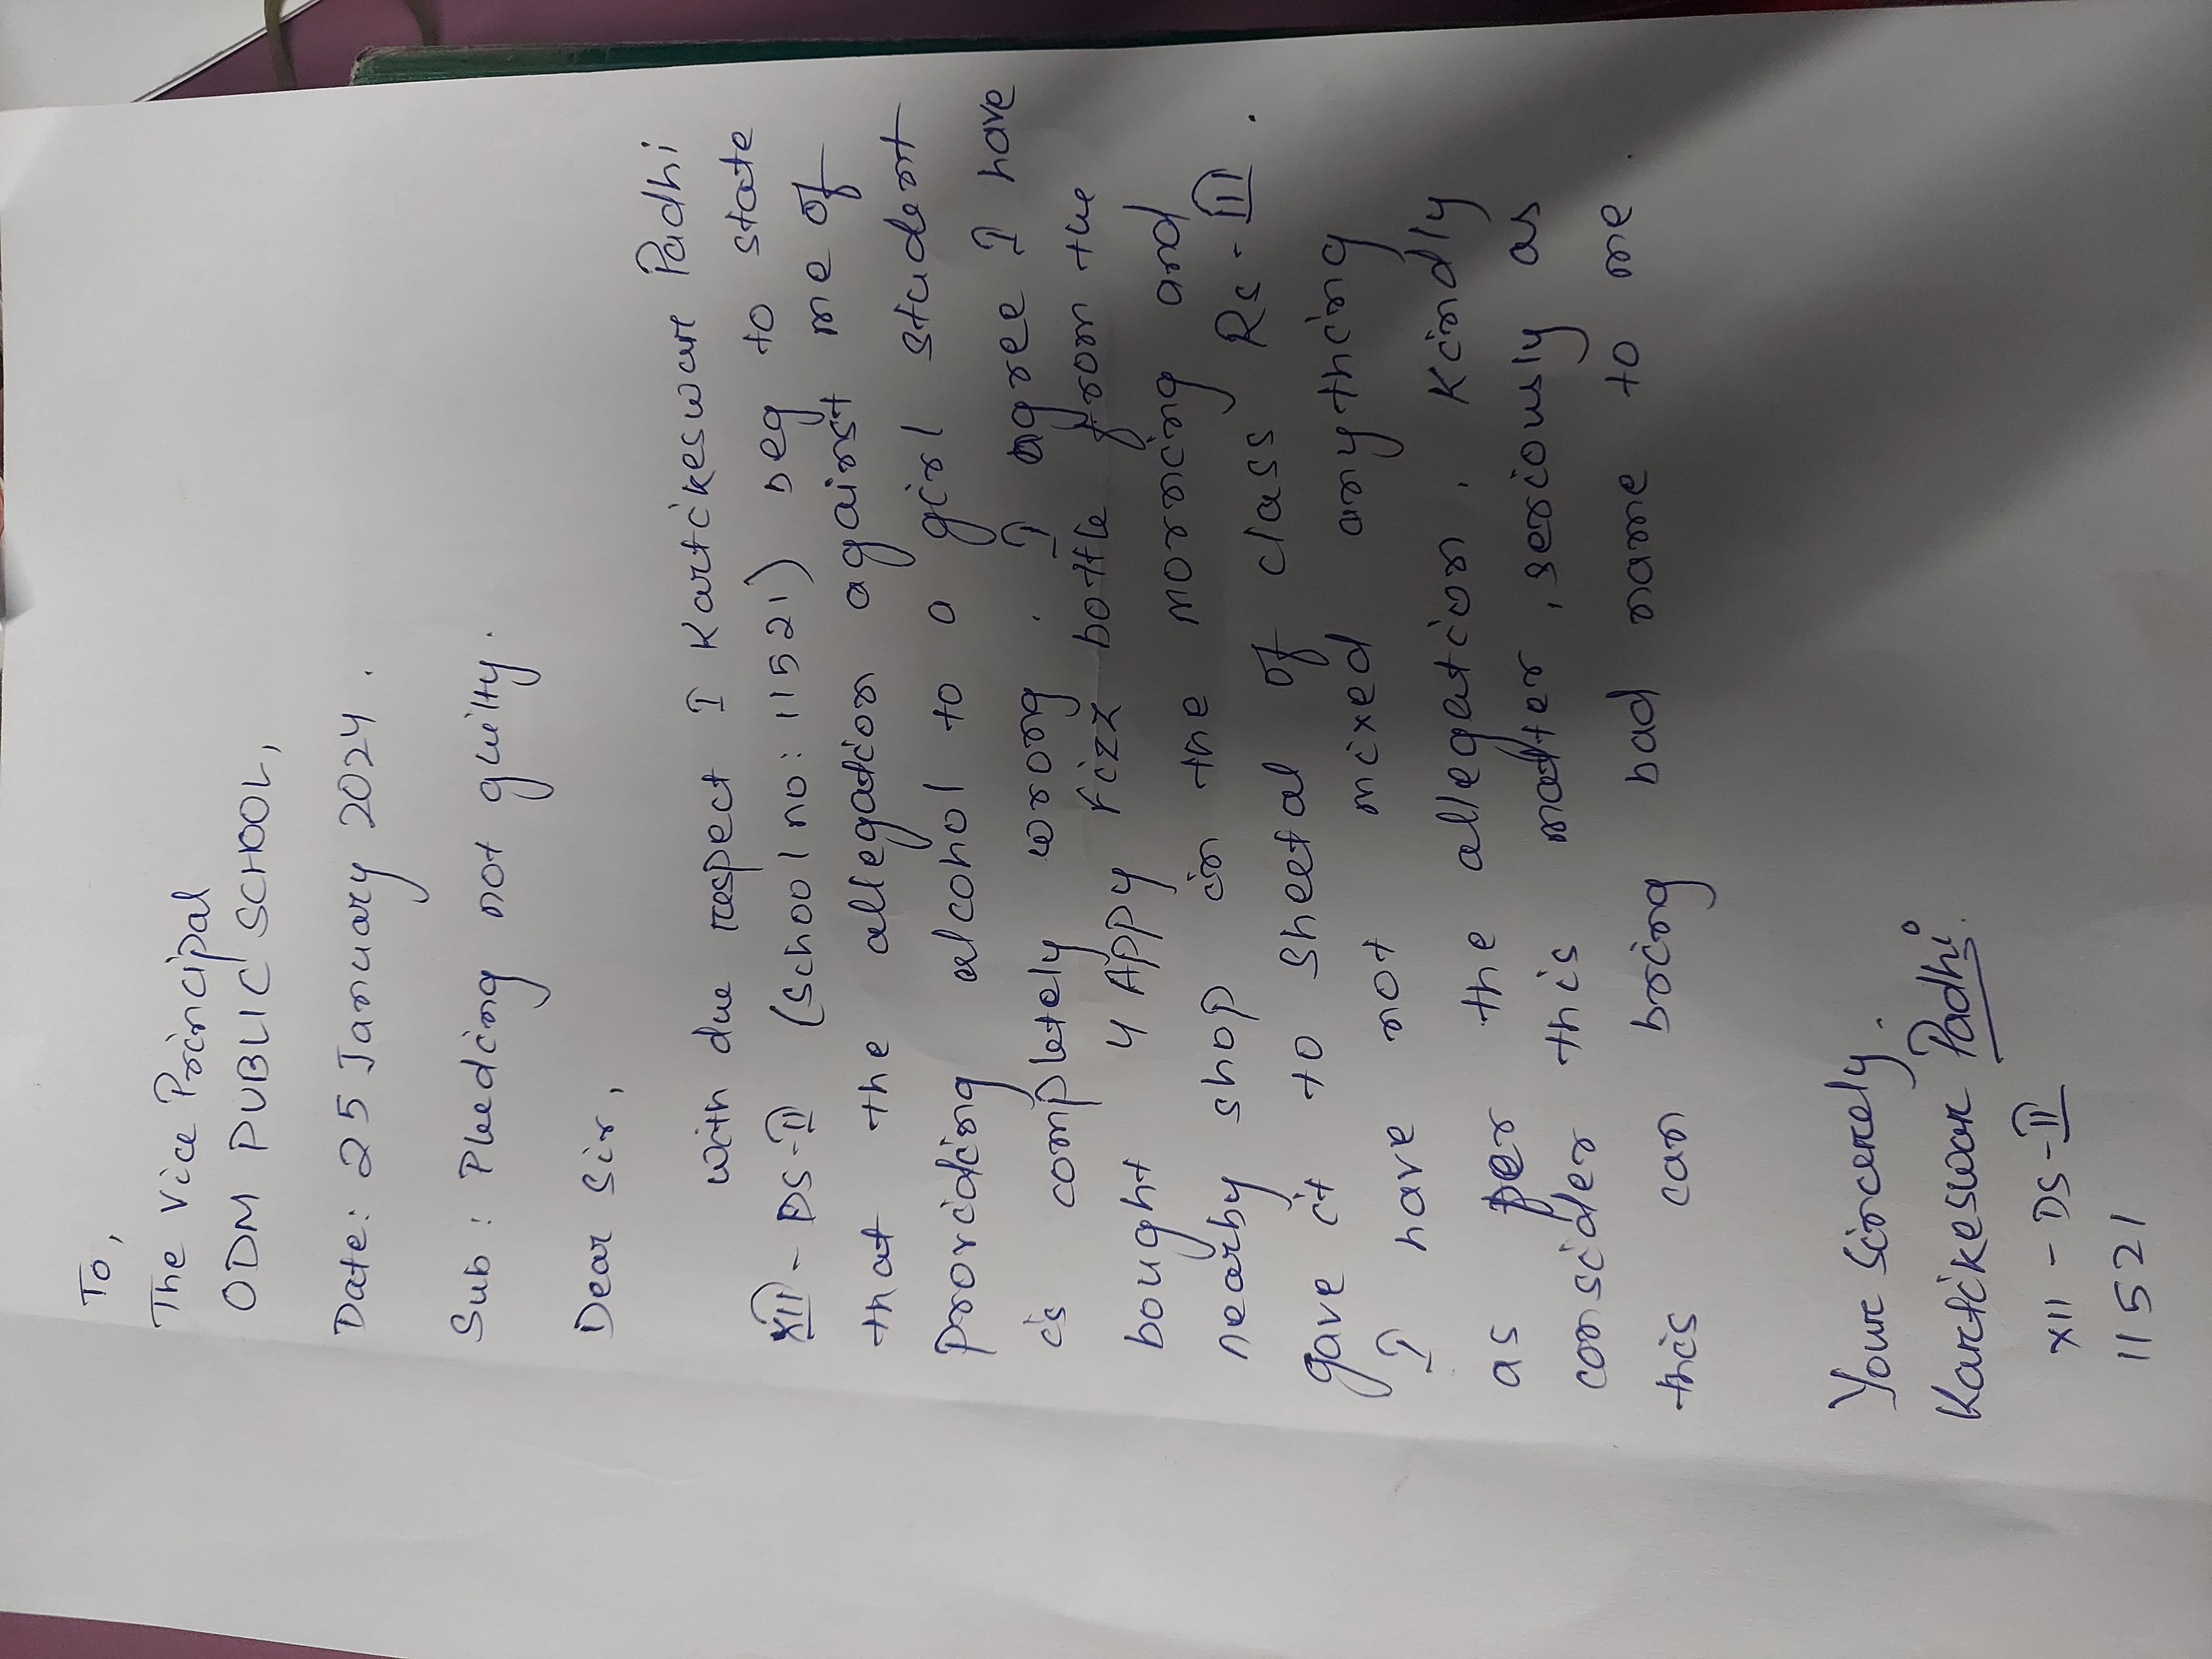 To,
The Vice Principal
ODM PUBLIC SCHOOL,
Date: 25 January 2024.
Sub: Pleading not guilty.
Dear Sir,
with due respect I Kartikeswar Padhi
XII - DS-II (School no: 11521) beg to state
that the allegation against me of
providing alcohol to a girl student
is completely wrong. I agree I have
bought 4 APPY Fizz bottle from the
nearby shop in the morning and
gave it to sheetal of class RS-III.
I have not mixed anything
as per the allegation. Kindly
consider this matter, seriously as
this can bring bad name to me.
Your sincerely.
Kartikeswar Padhi.
XII - DS-II
11521